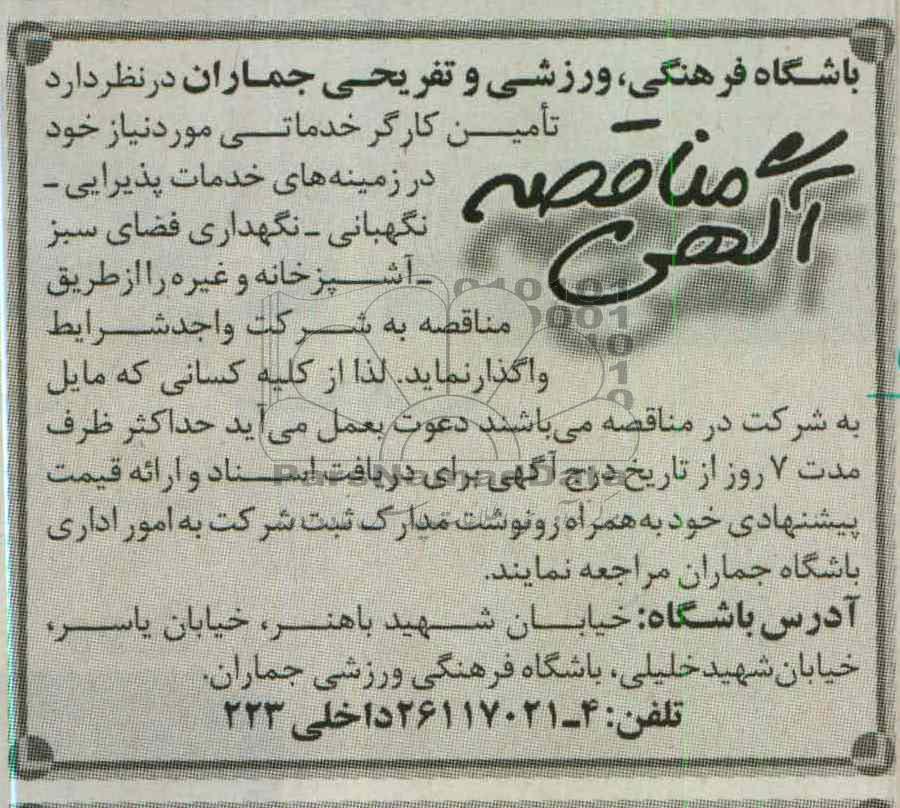 باشگاه فرهنگی، ورزشی و تفریحی جماران در نظر دارد
آگهی مناقصه
تأمین کارگر خدماتی موردنیاز خود
در زمینه‌های خدمات پذیرایی -
نگهبانی - نگهداری فضای سبز
- آشپزخانه و غیره را از طریق
مناقصه به شرکت واجدشرایط
واگذار نماید. لذا از کلیه کسانی که مایل
به شرکت در مناقصه می‌باشند دعوت بعمل می‌آید حداکثر ظرف
مدت ۷ روز از تاریخ درج آگهی برای دریافت اسناد و ارائه قیمت
پیشنهادی خود به همراه رونوشت مدارک ثبت شرکت به امور اداری
باشگاه جماران مراجعه نمایند.
آدرس باشگاه: خیابان شهید باهنر، خیابان یاسر،
خیابان شهید خلیلی، باشگاه فرهنگی ورزشی جماران.
تلفن: ۴-۲۶۱۱۷۰۲۱ داخلی ۲۲۳